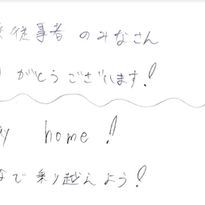 従事者 のみなさん
がとうございます!
home!
で 乗り越えよう!